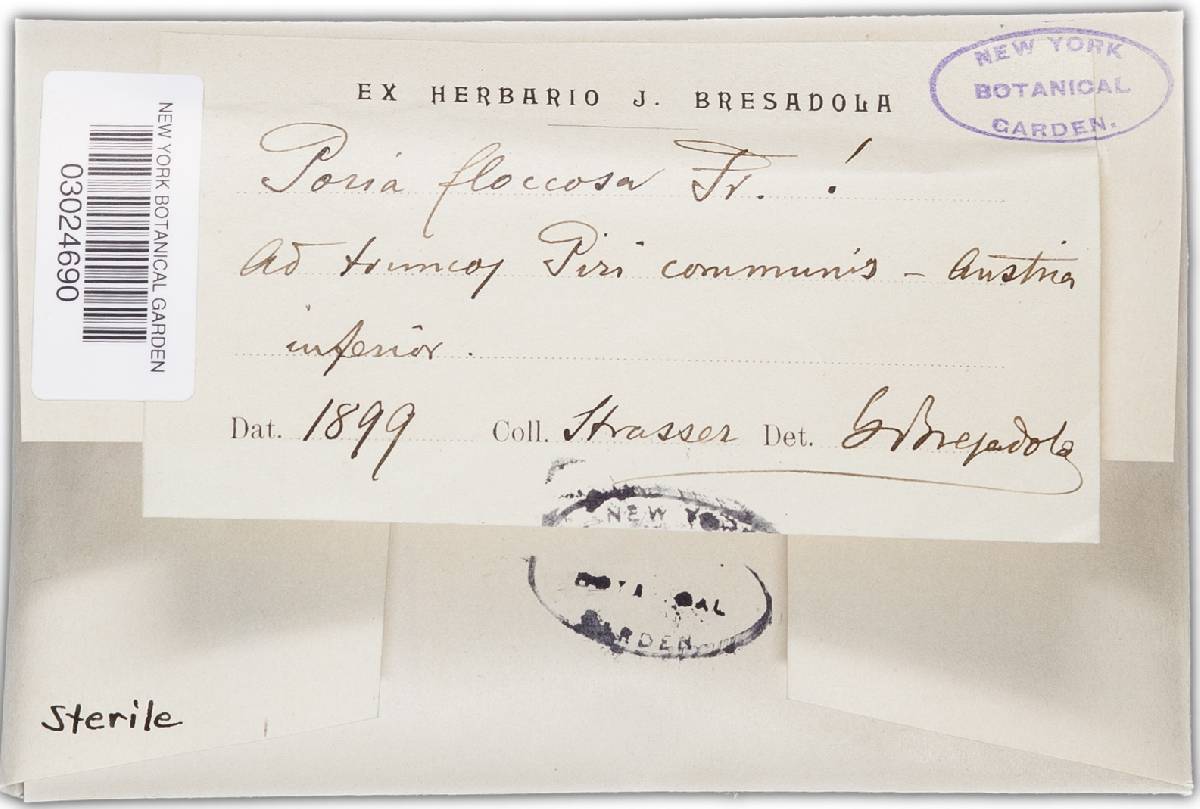 NEW YORK
BOTANICAL
GARDEN.
EX HERBARIO J. BRESADOLA
Poria floccosa Fr. !
Ad truncos Piri communis – Austria
inferior.
Dat. 1899 Coll. Strasser Det. G Bresadola
NEW YORK BOTANICAL GARDEN
03024690
NEW YO
BOTANICAL
GARDEN.
Sterile